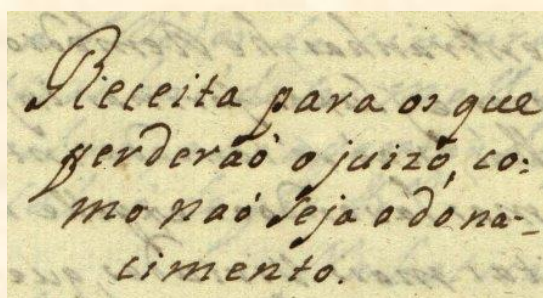 Receita para os que
perderaõ o juizo, co:
mo naõ seja o do na-
cimento.